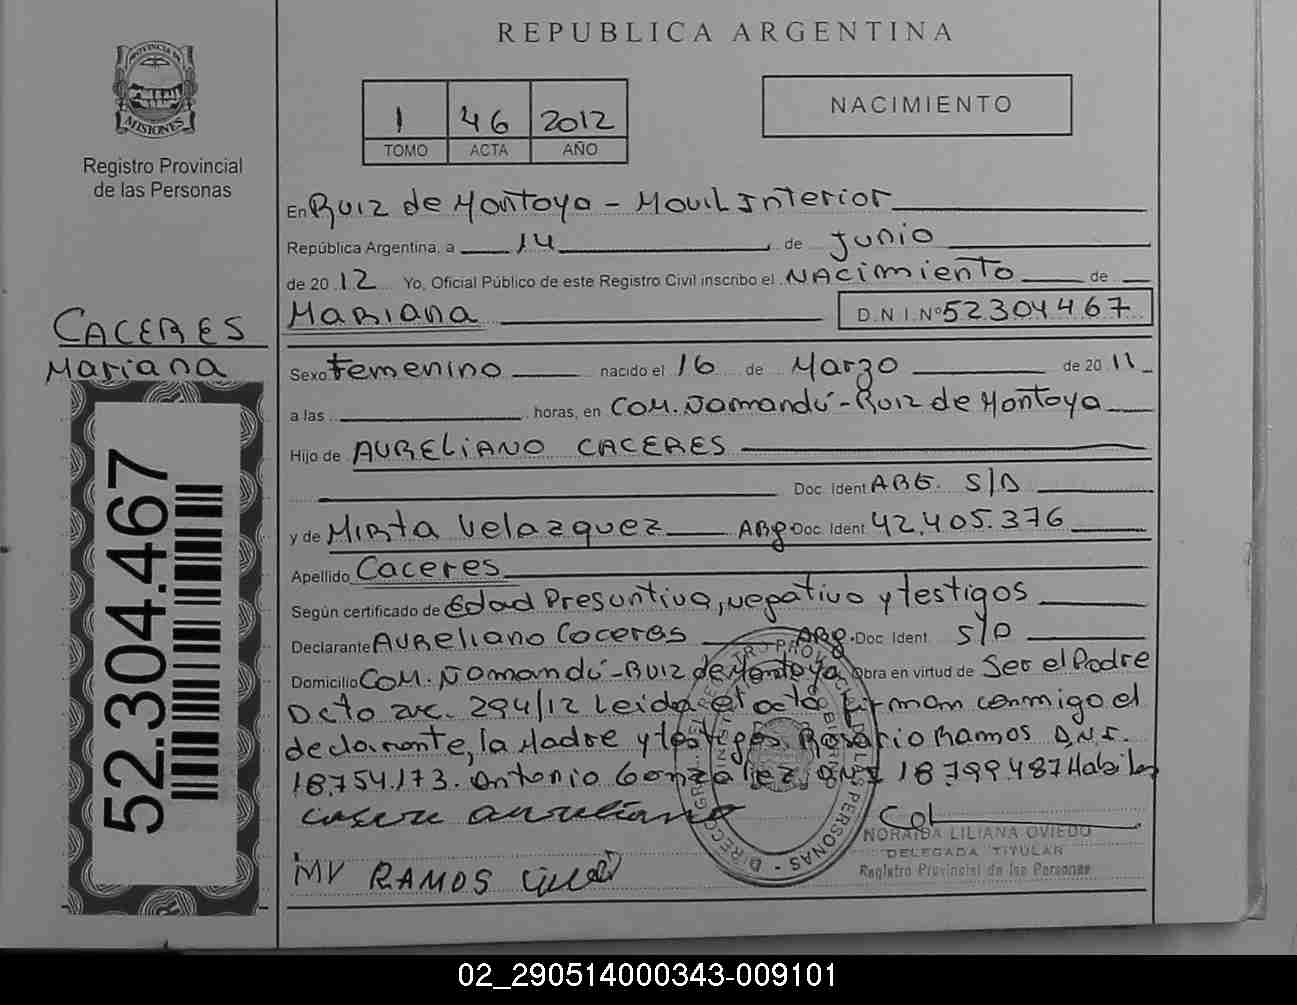 REPUBLICA ARGENTINA
PROVINCIA DE
MISIONES
Registro Provincial
de las Personas
1 46 2012
TOMO ACTA AÑO
NACIMIENTO
En Ruiz de Montoya - Movil Interior
República Argentina, a 14 de Junio
de 2012 Yo, Oficial Público de este Registro Civil inscribo el NAcimiento de
Mariana D.N.I.Nº 52304467
CACERES
Mariana
Sexo Femenino nacido el 16 de Marzo de 2011
a las horas, en Com. Ñamandú - Ruiz de Montoya
Hijo de AURELIANO CACERES
Doc. Ident ARG. S/D
y de Mirta Velazquez Arg Doc. Ident 42.405.376
Apellido Caceres
Según certificado de Edad Presuntiva, negativo y testigos
Declarante Aureliano Caceres Arg. Doc. Ident. S/D
Domicilio Com. Ñamandú - Ruiz de Montoya Obra en virtud de Ser el Padre
Dcto 294/12 Leida el acta firman conmigo el
declarante, la Madre y testigos Rosario Ramos D.N.I.
18.754.173. Antonio Gonzalez DNI 18.799487 Habiles
52.304.467
NORAIDA LILIANA OVIEDO
DELEGADA TITULAR
Registro Provincial de las Personas
MV RAMOS
02_290514000343-009101